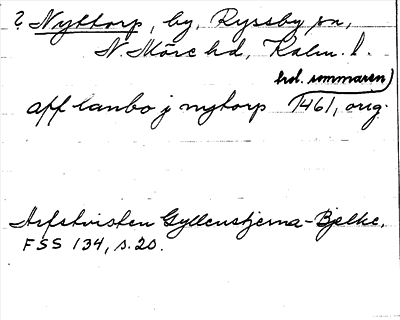 ? Nyttorp, by, Ryssby sn,
N. Möre hd, Kalm. l.
hd. sommaren)
aff lanbo j nytorp 1461, orig.
Arfstvisten Gyllenstjerna-Bjelke.
FSS 134, s. 20.